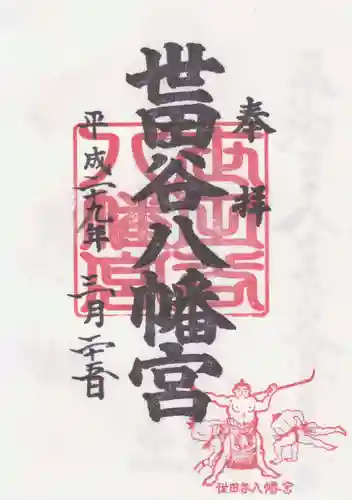 奉拝
世田谷八幡宮
平成二十九年 三月二十五日
世田谷八幡宮